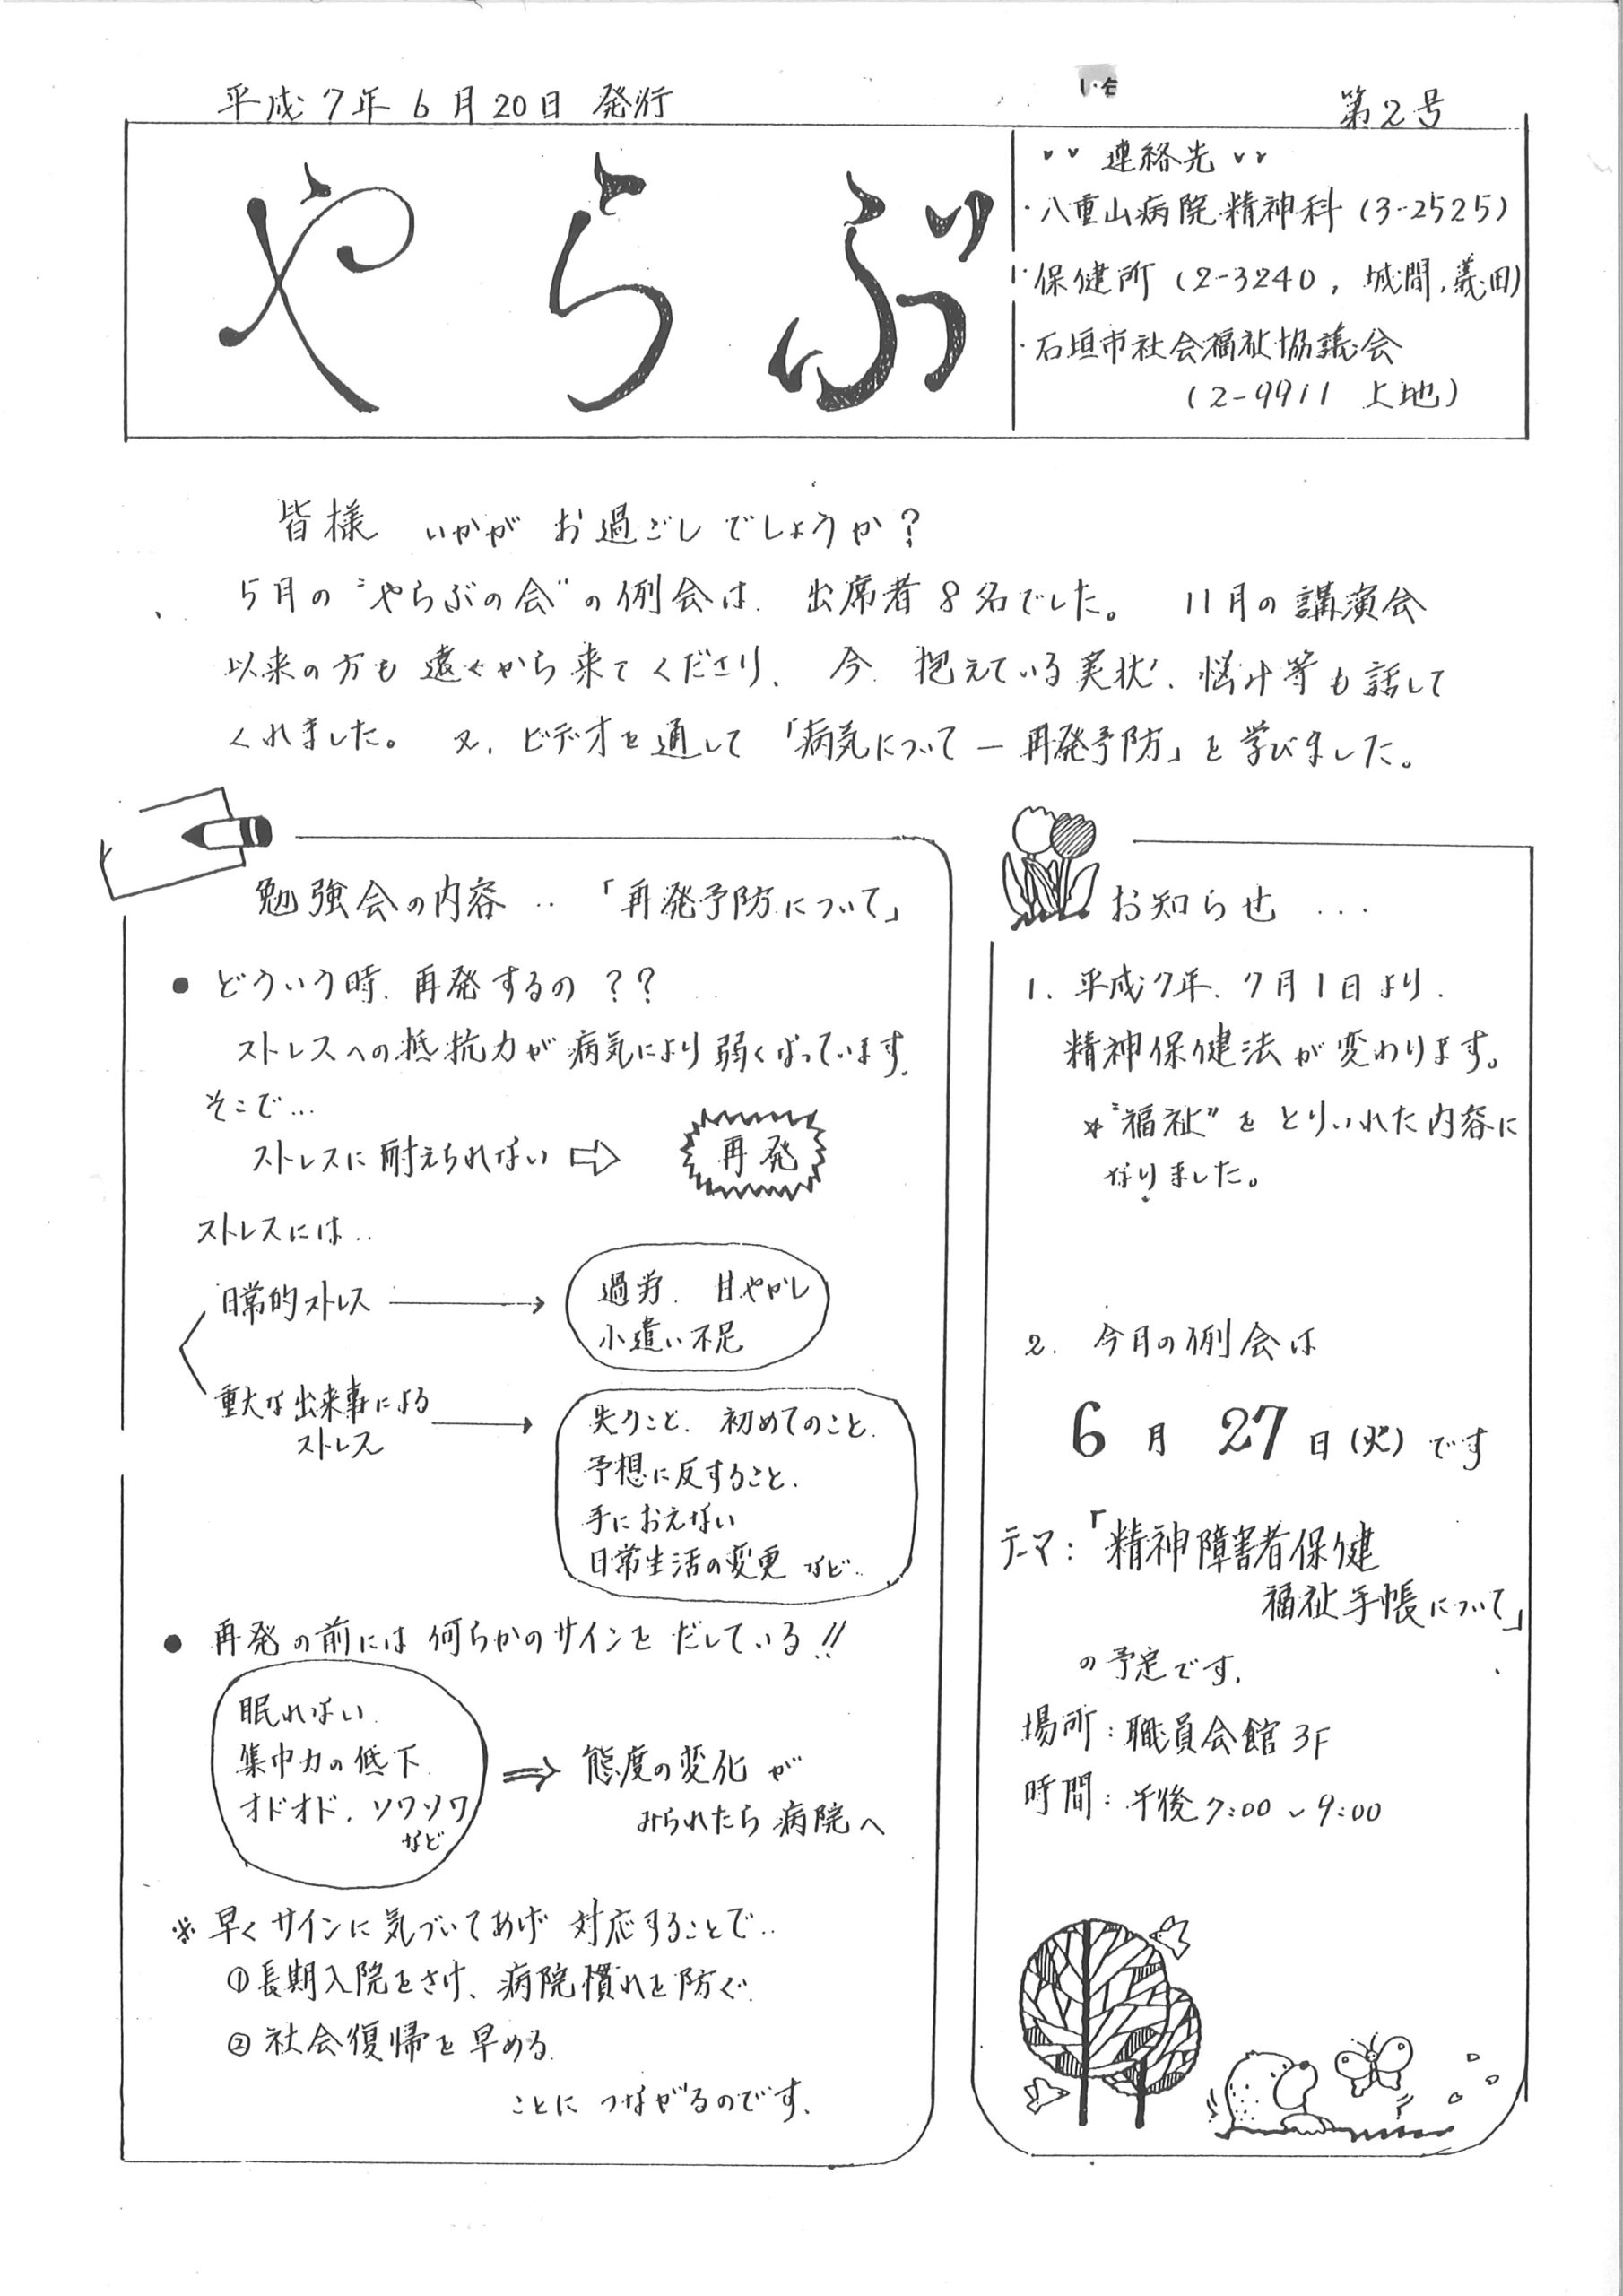 平成7年6月20日 発行
第2号
やらぶ
〃 連絡先 〃
・八重山病院精神科 (3-2525)
・保健所 (2-3240, 城間, 義田)
・石垣市社会福祉協議会
(2-9911 上地)
皆様 いかが お過ごしでしょうか?
5月の“やらぶの会”の例会は、出席者8名でした。 11月の講演会
以来の方も遠くから来てくださり、今、抱えている実状、悩み等も話して
くれました。 又、ビデオを通して「病気について―再発予防」を学びました。
勉強会の内容‥「再発予防について」
● どういう時、再発するの??
ストレスへの抵抗力が病気により弱くなっています。
そこで…
ストレスに耐えられない ⇨ 再発
ストレスには‥
日常的ストレス → 過労、甘やかし
小遣い不足
重大な出来事による
ストレス → 失うこと、初めてのこと、
予想に反すること、
手におえない
日常生活の変更 など‥
● 再発の前には何らかのサインをだしている!!
眠れない、
集中力の低下、
オドオド、ソワソワ
など
⇒ 態度の変化が
みられたら病院へ
※ 早くサインに気づいてあげ対応することで‥
①長期入院をさけ、病院慣れを防ぐ、
②社会復帰を早める、
ことにつながるのです。
お知らせ …
1. 平成7年、7月1日より、
精神保健法が変わります。
*“福祉”をとりいれた内容に
なりました。
2. 今月の例会は
6月27日(火)です
テーマ:「精神障害者保健
福祉手帳について」
の予定です。
場所:職員会館3F
時間:午後7:00~9:00